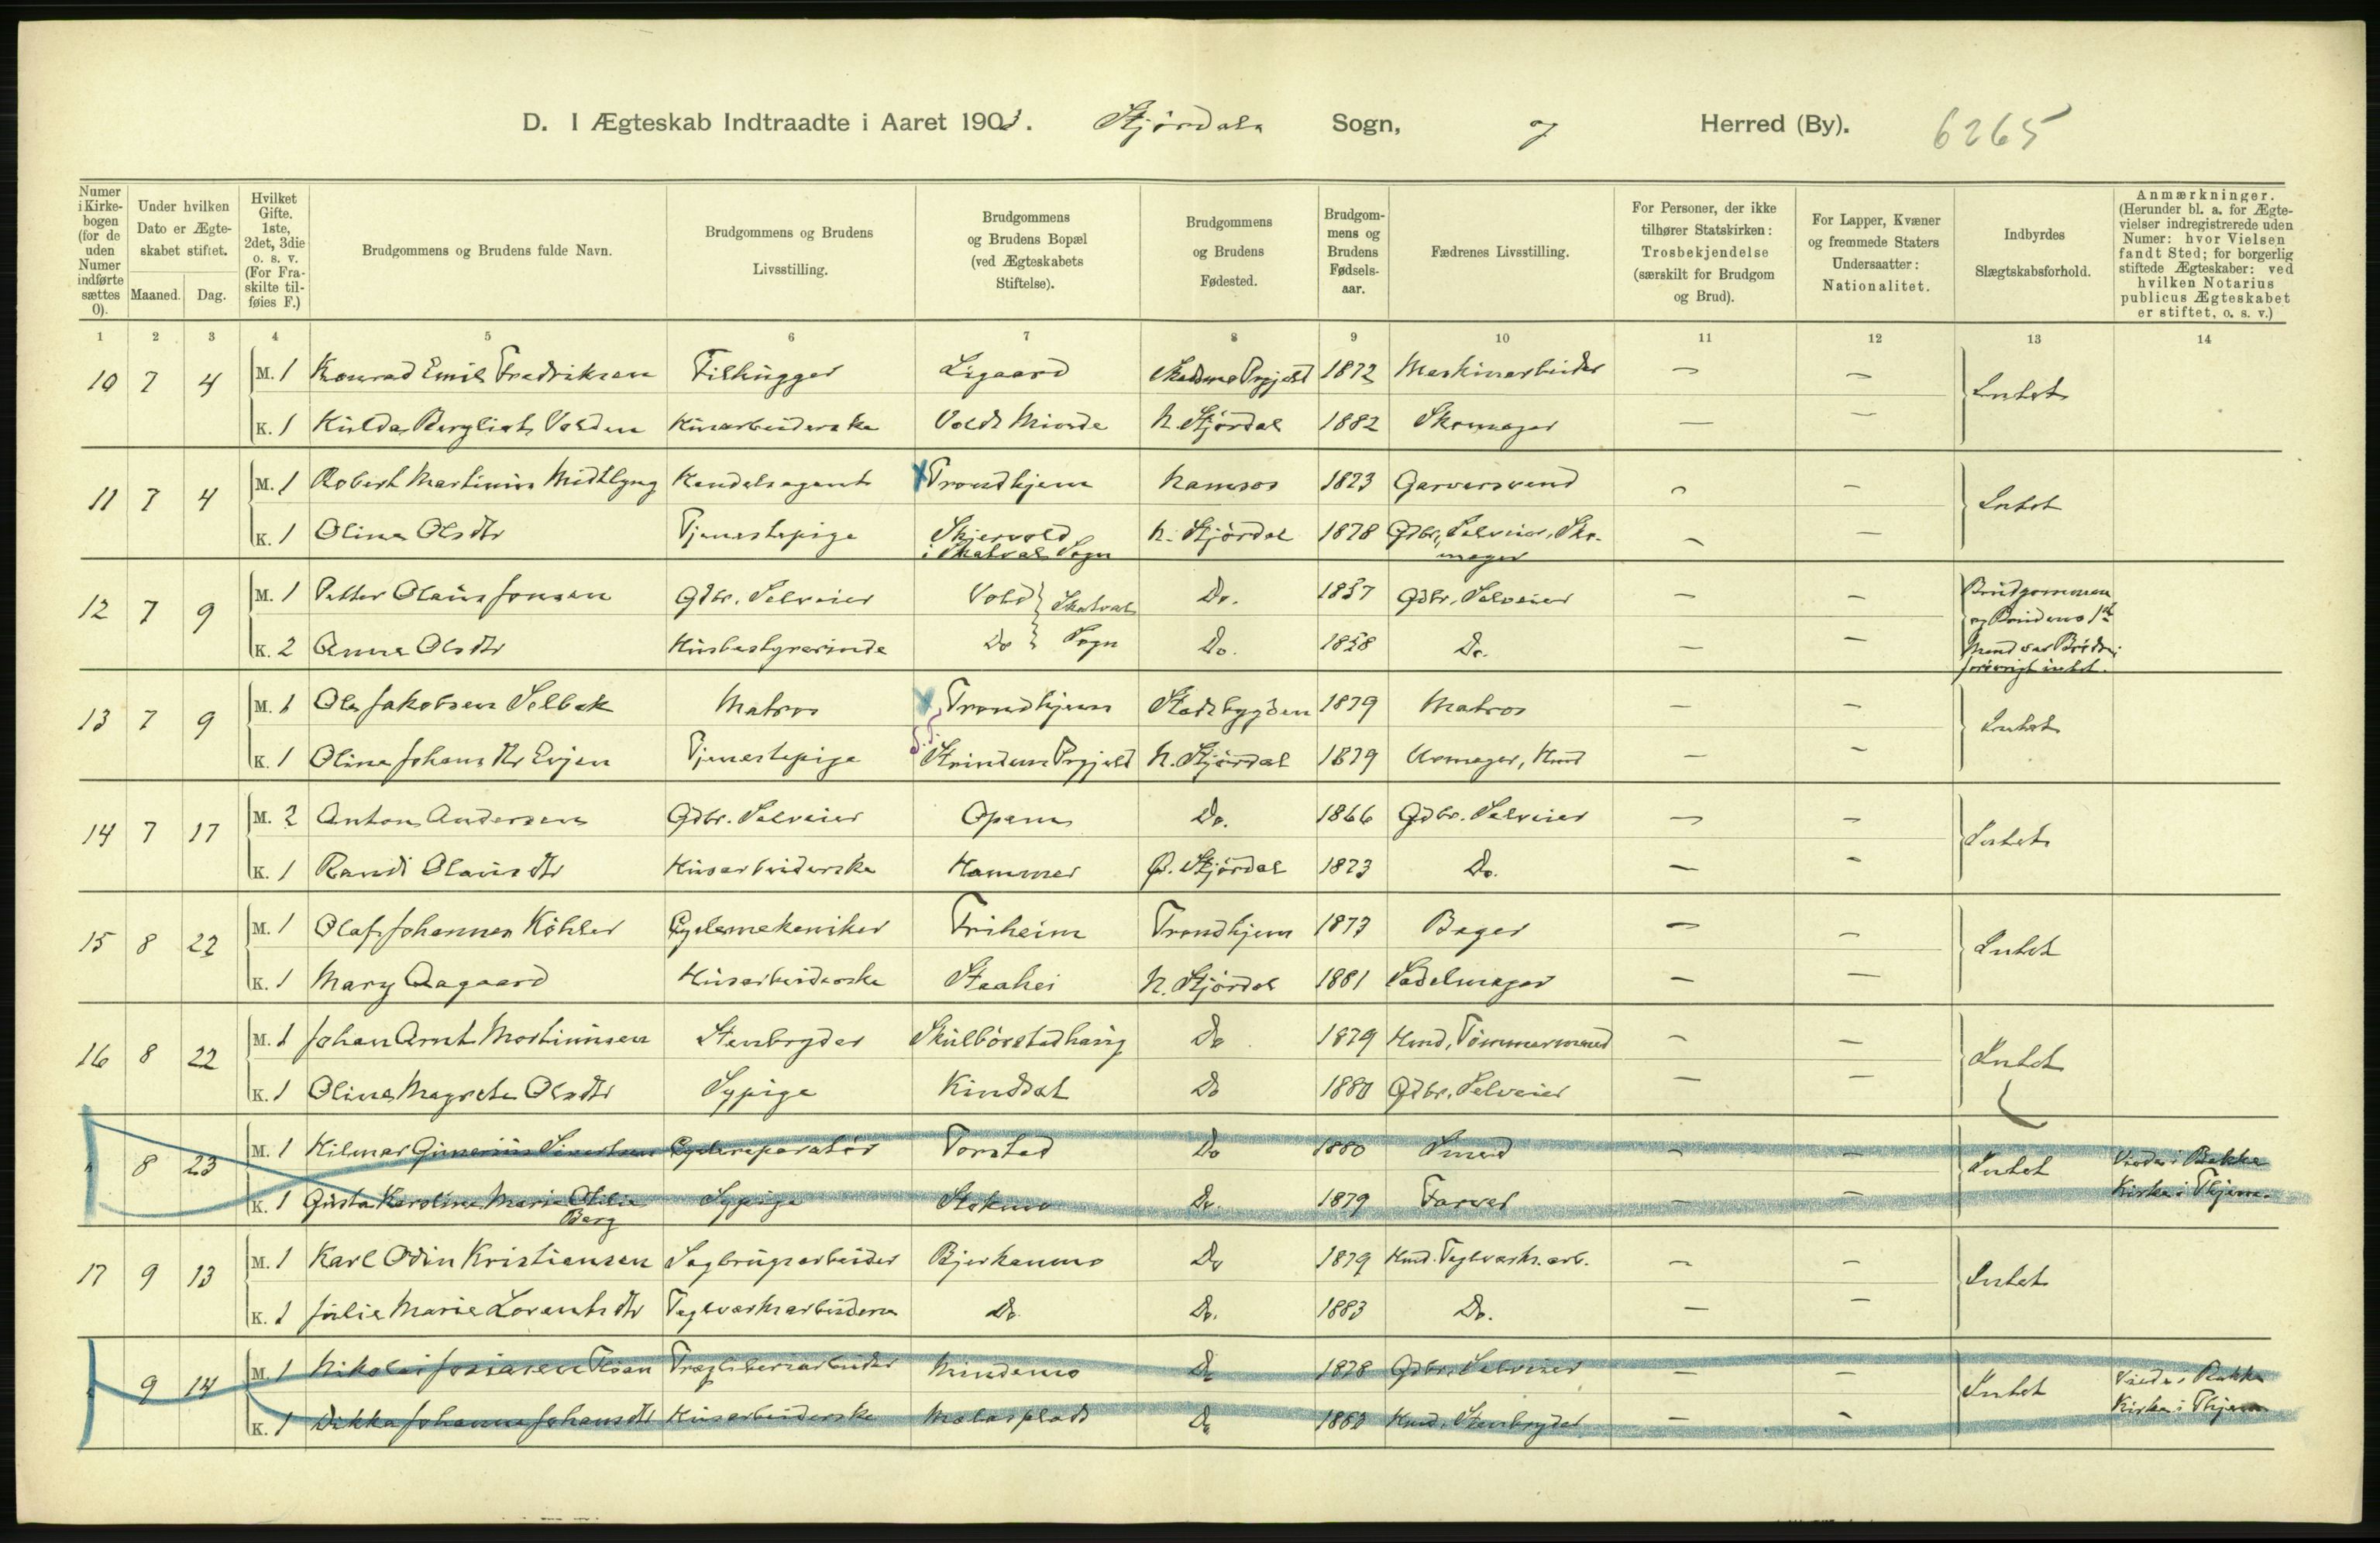 D. I Ægteskab Indtraadte i Aaret 1903. Stjørdals Sogn, og Herred (By). 6265
Numer i Kirkebogen (for de uden Numer indførte sættes 0).
Under hvilken Dato er Ægteskabet stiftet.
Maaned. Dag.
Hvilket Gifte. 1ste, 2det, 3die o. s. v. (For Fraskilte tilføies F.)
Brudgommens og Brudens fulde Navn.
Brudgommens og Brudens Livsstilling.
Brudgommens og Brudens Bopæl (ved Ægteskabets Stiftelse).
Brudgommens og Brudens Fødested.
Brudgommens og Brudens Fødselsaar.
Fædrenes Livsstilling.
For Personer, der ikke tilhører Statskirken: Trosbekjendelse (særskilt for Brudgom og Brud).
For Lapper, Kvæner og fremmede Staters Undersaatter: Nationalitet.
Indbyrdes Slægtskabsforhold.
Anmærkninger. (Herunder bl. a. for Ægtevielser indregistrerede uden Numer: hvor Vielsen fandt Sted; for borgerlig stiftede Ægteskaber: ved hvilken Notarius publicus Ægteskabet er stiftet, o. s. v.)
1 2 3 4 5 6 7 8 9 10 11 12 13 14
10 7 4 M. 1 Konrad Emil Fredriksen Filhugger Ligaard Prgjeld 1872 Maskinarbeider — — Intet
K. 1 Hulda Bergliot Volden Husarbeiderske Volds Minde N. Stjørdal 1882 Skomager — —
11 7 4 M. 1 Robert Martinius Midtlyng Handelsagent Trondhjem Namsos 1873 Garversvend — — Intet
K. 1 Oline Olsdtr Tjenestepige Skjervold i Skatval Sogn N. Stjørdal 1878 Gdbr., Selveier, Skomager — —
12 7 9 M. 1 Petter Olaus Jonsen Gdbr. Selveier Vold } Skatval Do. 1857 Gdbr, Selveier — — Brudgommen
K. 2 Anne Olsdtr Husbestyrerinde Do } Sogn Do. 1858 Do. — — og Brudens 1ste Mand var Brødre; forøvrigt intet.
13 7 9 M. 1 Ole Jakobsen Selbek Matros Trondhjem Stadsbygden 1879 Matros — — Intet
K. 1 Oline Johansdtr Evjen Tjenestepige Strinden Prgjeld N. Stjørdal 1879 Urmager, Hmd — —
14 7 17 M. 2 Anton Andersen Gdbr. Selveier Opem Do. 1866 Gdbr. Selveier — — Intet
K. 1 Randi Olausdtr Husarbeiderske Hammer Ø. Stjørdal 1873 Do. — —
15 8 22 M. 1 Olaf Johannes Köhler Cyclemekaniker Friheim Trondhjem 1873 Bager — — Intet
K. 1 Mary Aagaard Husarbeiderske N. Stjørdal 1881 Sadelmager — —
16 8 22 M. 1 Johan Arnt Martinusen Stenbryder Skulbørstadhaug Do 1879 Hmd, Tømmermand — — Intet
K. 1 Oline Magrete Olsdtr Sypige Kinddal Do 1880 Gdbr. Selveier — —
8 23 M. 1 Hilmar Gunerius Sivertsen Cyclereparatør Torstad Do 1880 Smed — — Intet Viede i Bakke
K. 1 Gusta Karoline Marie Otilie Berg Sypige Stokmo Do. 1879 Farver — — Kirke i Thjem.
17 9 13 M. 1 Karl Odin Kristiansen Sagbrugsarbeider Bjerkanmo Do 1879 Hmd. Teglværks.arb. — — Intet
K. 1 Julie Marie Lorentsdtr Teglværksarbeiderne Do. Do. 1883 Do. — —
9 14 M. 1 Nikolai Træsliberiarbeider Mindemo Do 1878 Gdbr., Selveier — — Intet Viede i Bakke
K. 1 Dikka Johanna Johansdtr Husarbeiderske Molasplads Do 1883 Hmd., Stenbryder — — Kirke i Thjem